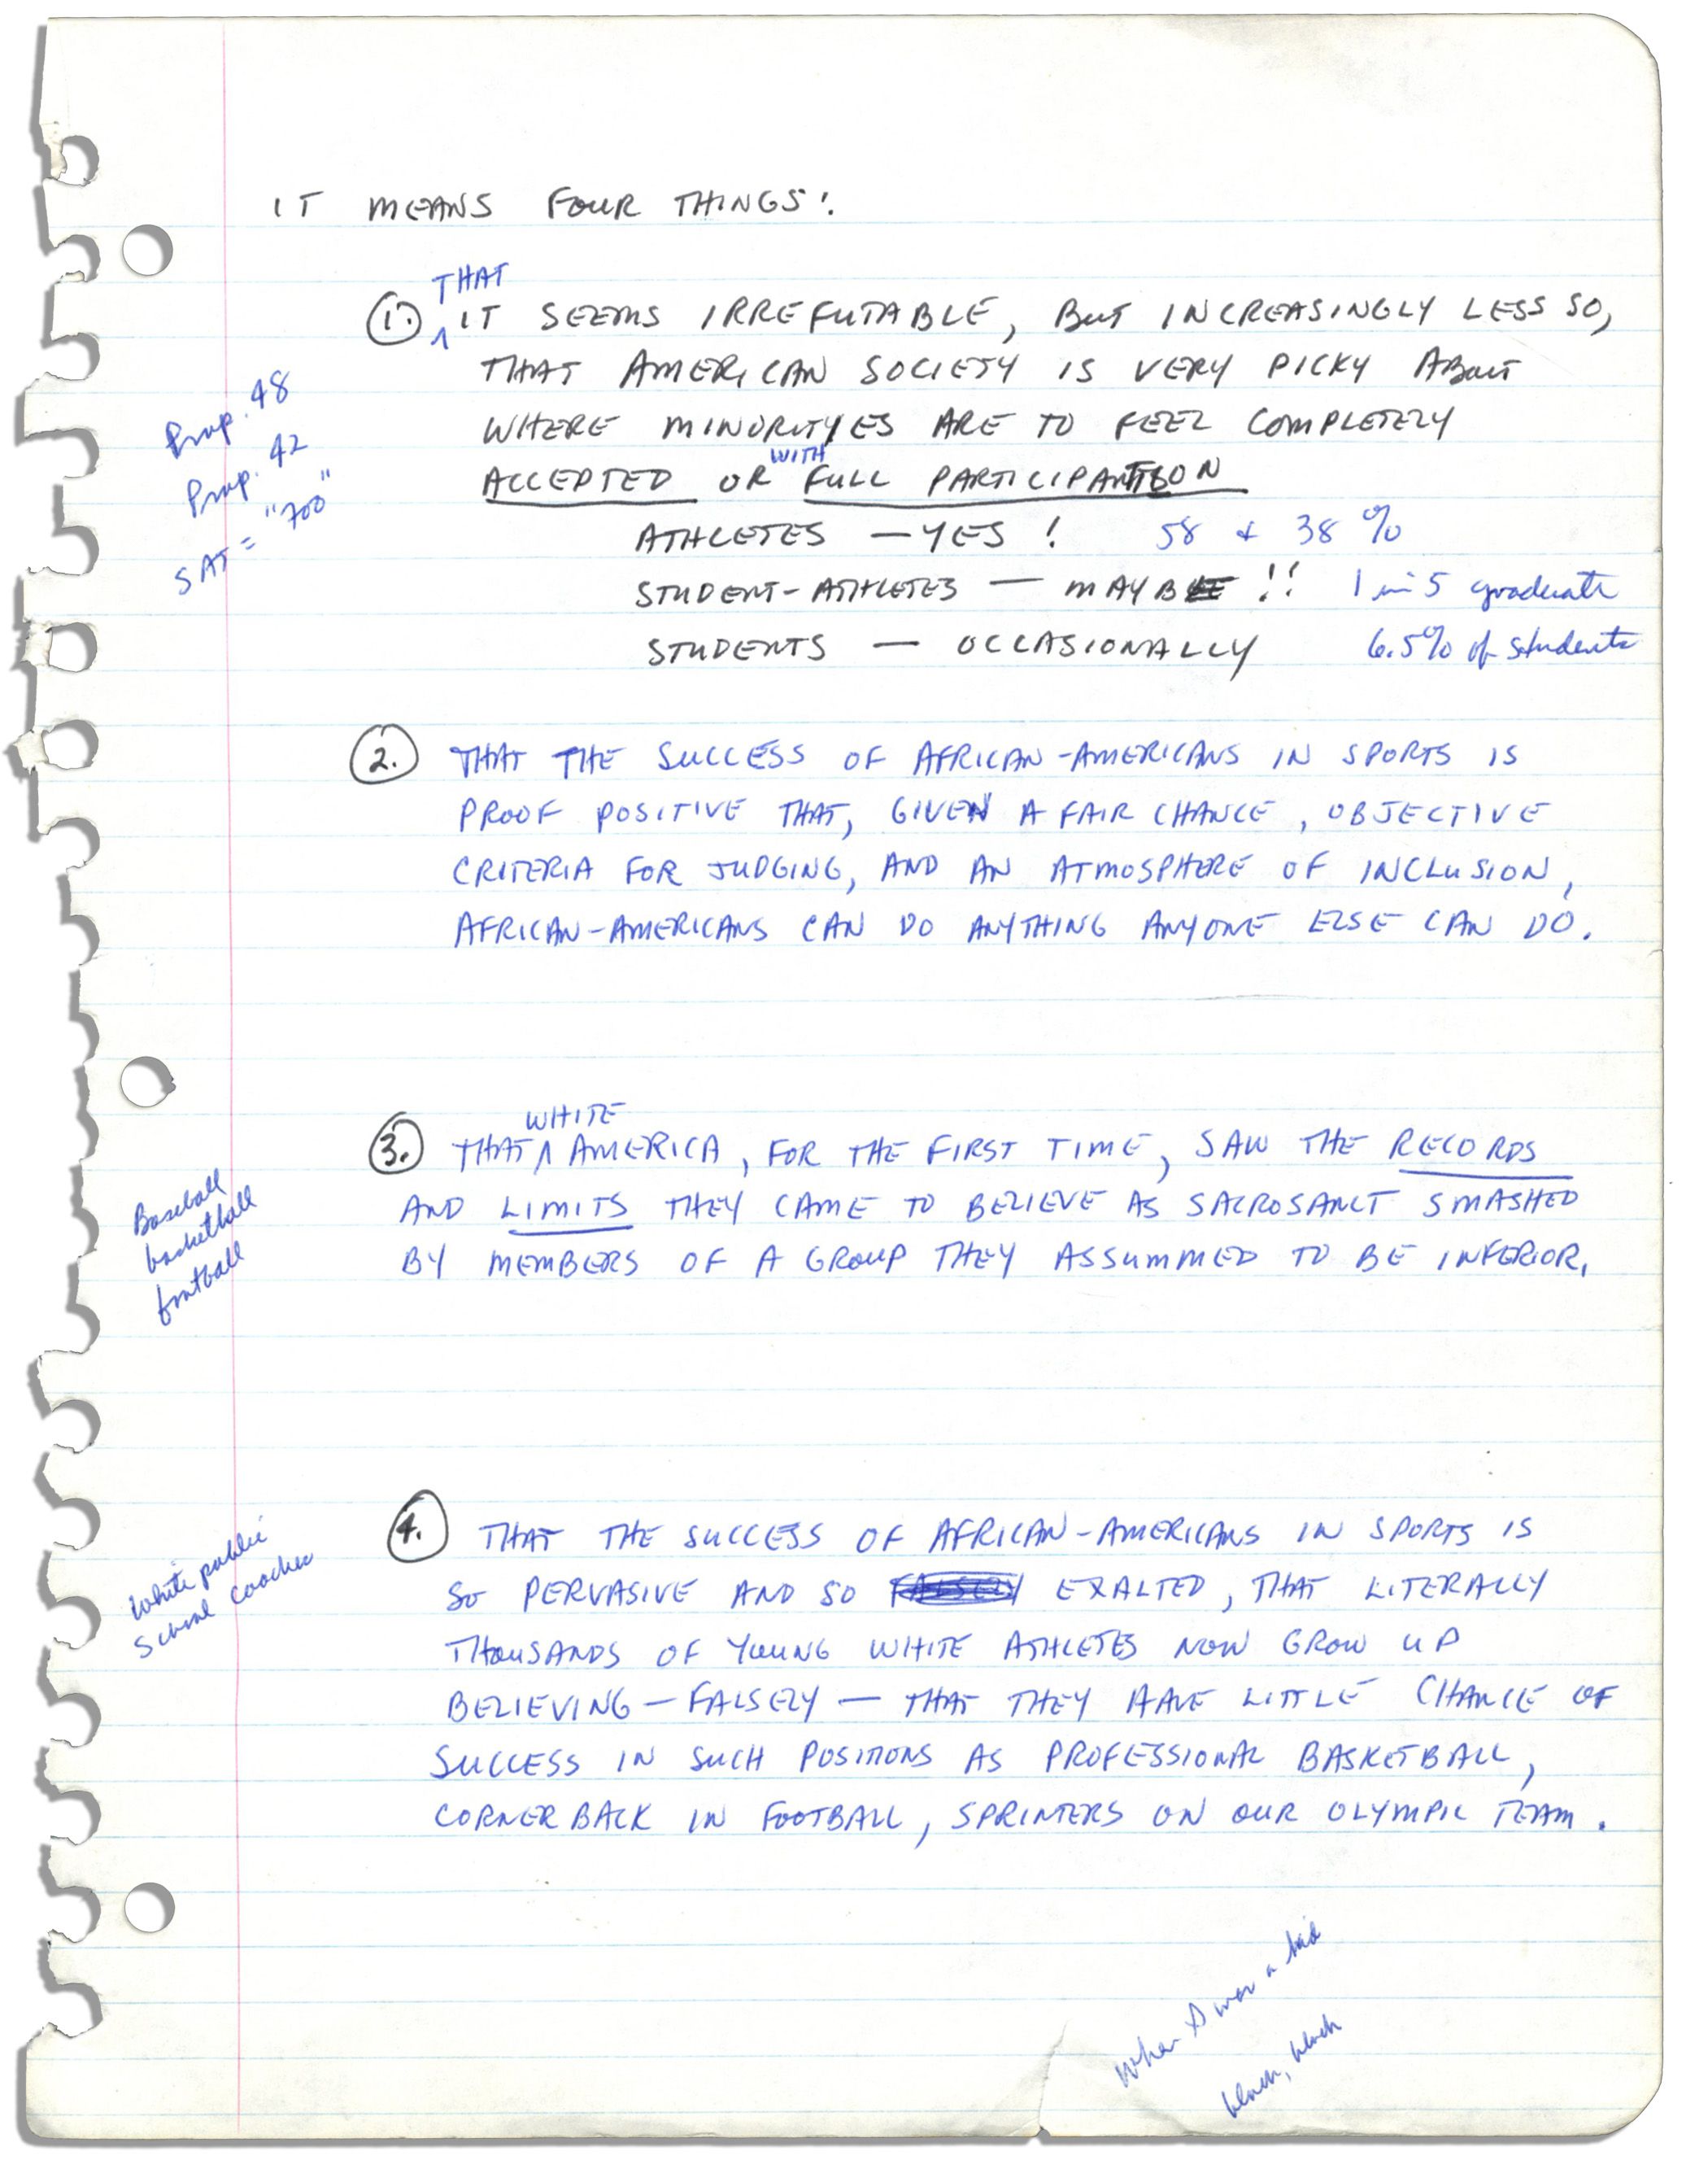 IT MEANS FOUR THINGS:
THAT
1. ^ IT SEEMS IRREFUTABLE, BUT INCREASINGLY LESS SO,
THAT AMERICAN SOCIETY IS VERY PICKY ABOUT
WHERE MINORITYES ARE TO FEEL COMPLETELY
WITH
ACCEPTED OR FULL PARTICIPANTION
ATHLETES — YES! 58 & 38 %
STUDENT-ATHLETES — MAYBE !! 1 in 5 graduate
STUDENTS — OCCASIONALLY 6.5% of students
Prop. 48
Prop. 42
SAT = "700"
2. THAT THE SUCCESS OF AFRICAN-AMERICANS IN SPORTS IS
PROOF POSITIVE THAT, GIVEN A FAIR CHANCE, OBJECTIVE
CRITERIA FOR JUDGING, AND AN ATMOSPHERE OF INCLUSION,
AFRICAN-AMERICANS CAN DO ANYTHING ANYONE ELSE CAN DO.
WHITE
3. THAT ^ AMERICA, FOR THE FIRST TIME, SAW THE RECORDS
AND LIMITS THEY CAME TO BELIEVE AS SACROSANCT SMASHED
BY MEMBERS OF A GROUP THEY ASSUMMED TO BE INFERIOR.
Baseball
basketball
football
4. THAT THE SUCCESS OF AFRICAN-AMERICANS IN SPORTS IS
SO PERVASIVE AND SO FALSELY EXALTED, THAT LITERALLY
THOUSANDS OF YOUNG WHITE ATHLETES NOW GROW UP
BELIEVING — FALSELY — THAT THEY HAVE LITTLE CHANCE OF
SUCCESS IN SUCH POSITIONS AS PROFESSIONAL BASKETBALL,
CORNERBACK IN FOOTBALL, SPRINTERS ON OUR OLYMPIC TEAM.
White public
school coaches
When I was a kid
black, black